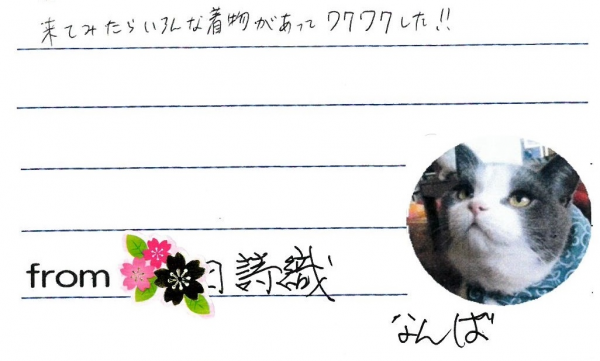 来てみたらいろんな着物があってワクワクした!!
from 詩織
なんば